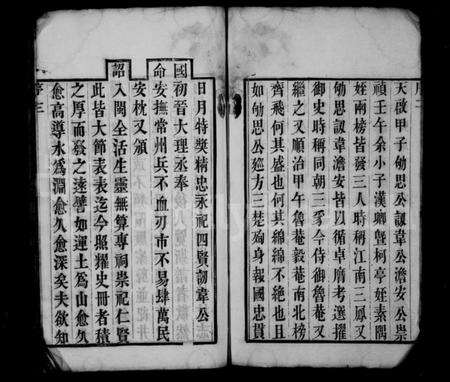 序二
天啟甲子劬思公諱韋公澹安公崇
禎壬午余小子漢卿曁柯亭姪素隅
姪兩榜皆發三人時稱江南三鳳又
劬思諱韋澹安皆以卓廣考選擢
御史時稱同朝三豸今侍御魯菴又
繼之又順治甲午魯菴毅菴南北榜
齊飛何其盛也何其綿綿不絶也且
如劬思公廵方三楚殉身報國忠貫
日月特獎精忠永祀四賢諱韋公
國初晉大理丞奉
命安撫常州兵不血刃市不易肆萬民
安枕又頒
詔入閩全活生靈無算專祠崇祀仁賢
此皆大節表表迄今照耀史冊者積
之厚而發之遠譬如運土爲山愈久
愈高導水爲淵愈久愈深矣夫欲知
序三